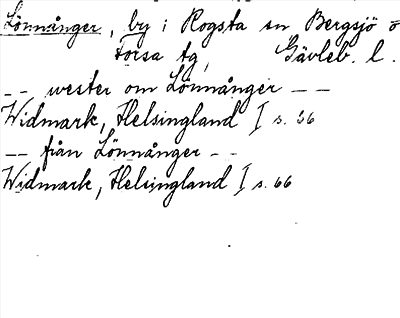 Lönnånger, by i Rogsta sn Bergsjö o
Forsa tg, Gävleb. l.
-- wester om Lönnånger --
Widmark, Helsingland I s. 66
-- från Lönnånger --
Widmark, Helsingland I s. 66